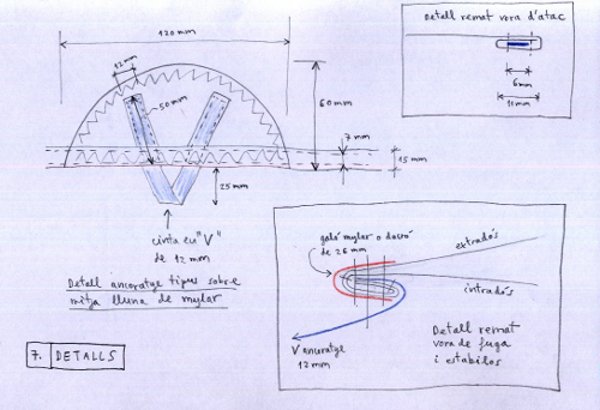 Detall remat vora d'atac
6 mm
10 mm
120 mm
12 mm
50 mm
60 mm
7 mm
15 mm
25 mm
cinta en "V"
de 12 mm
Detall ancoratge tipus sobre
mitja lluna de mylar
7. DETALLS
galó mylar o dacró
de 26 mm
extradós
intradós
V ancoratge
12 mm
Detall remat
vora de fuga
i estabilos